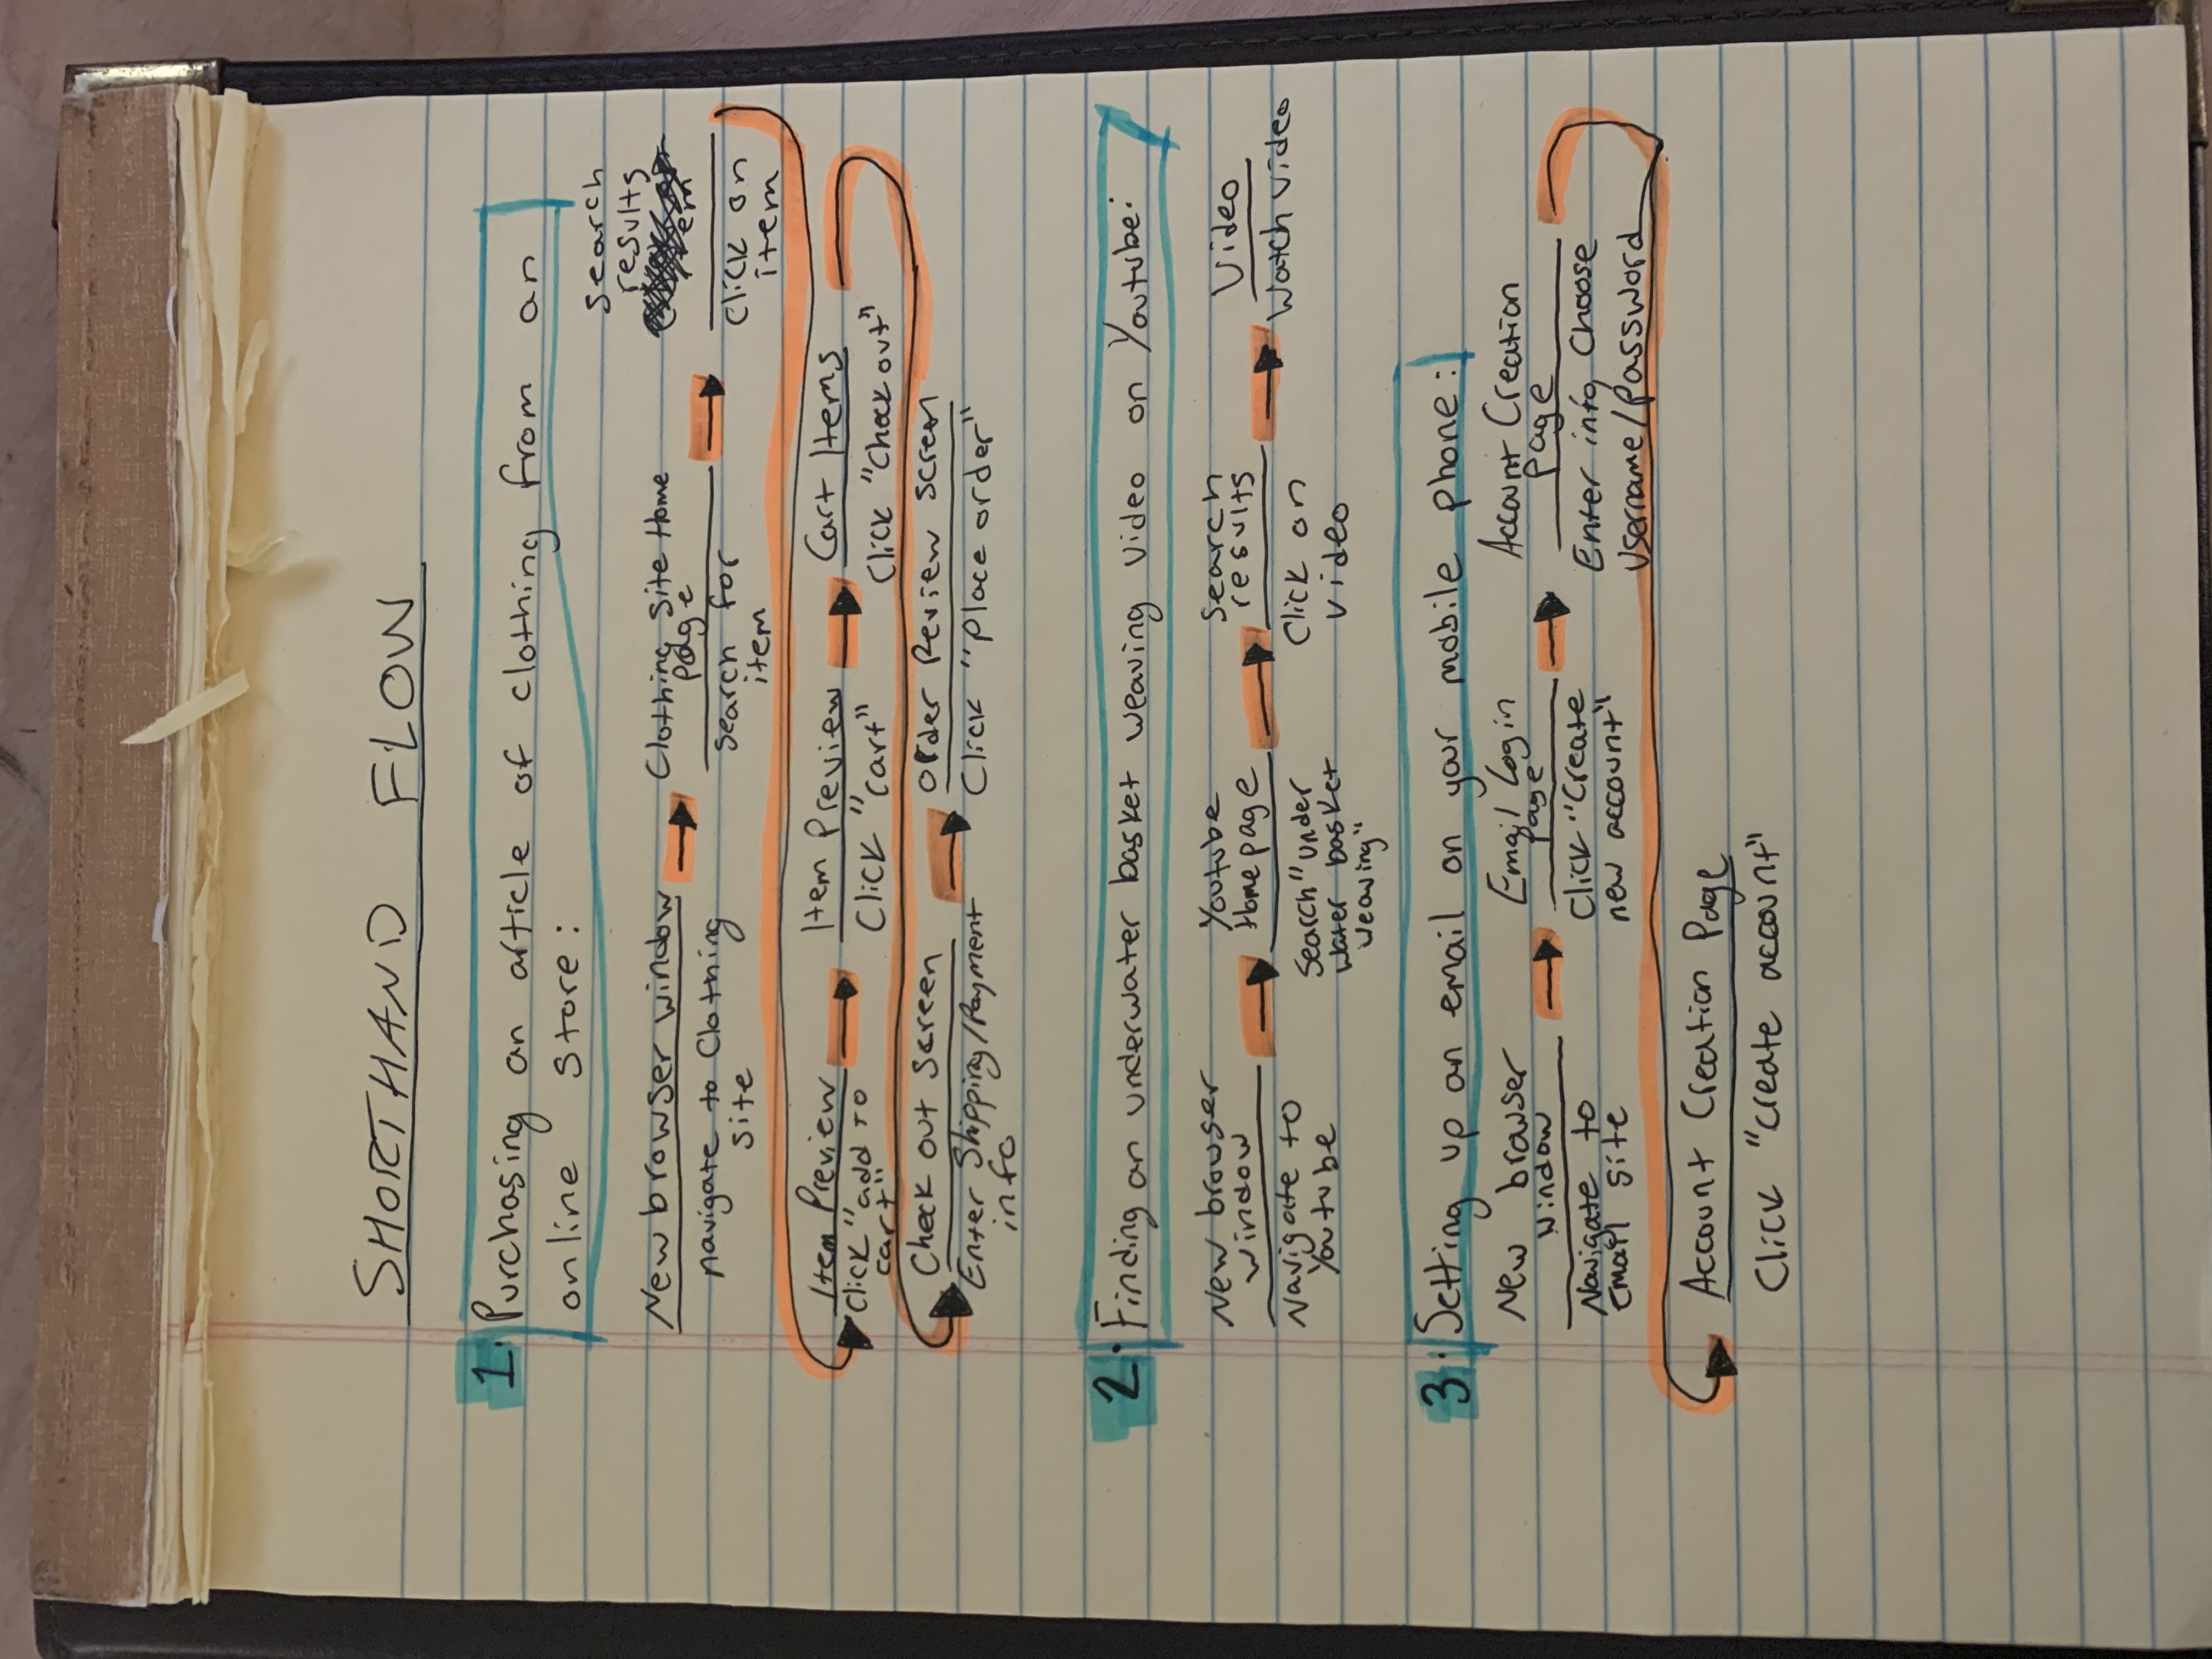 SHORTHAND FLOW
1. Purchasing an article of clothing from an
online store:
New browser window
navigate to Clothing
site
Clothing Site Home
page
search for
item
search
results
item
click on
item
Item Preview
Click "add to
cart"
Item Preview
Click "cart"
Cart Items
Click "Check out"
Check out screen
Enter Shipping/Payment
info
Order Review screen
Click "Place order"
2. Finding an underwater basket weaving video on Youtube:
New browser
window
Navigate to
Youtube
Youtube
Home page
Search "under
water basket
weaving"
Search
results
Click on
video
Video
Watch video
3. Setting up an email on your mobile phone:
New browser
window
Navigate to
email site
Email Login
page
Click "Create
new account"
Account Creation
page
Enter info, Choose
Username/Password
Account Creation Page
Click "create account"